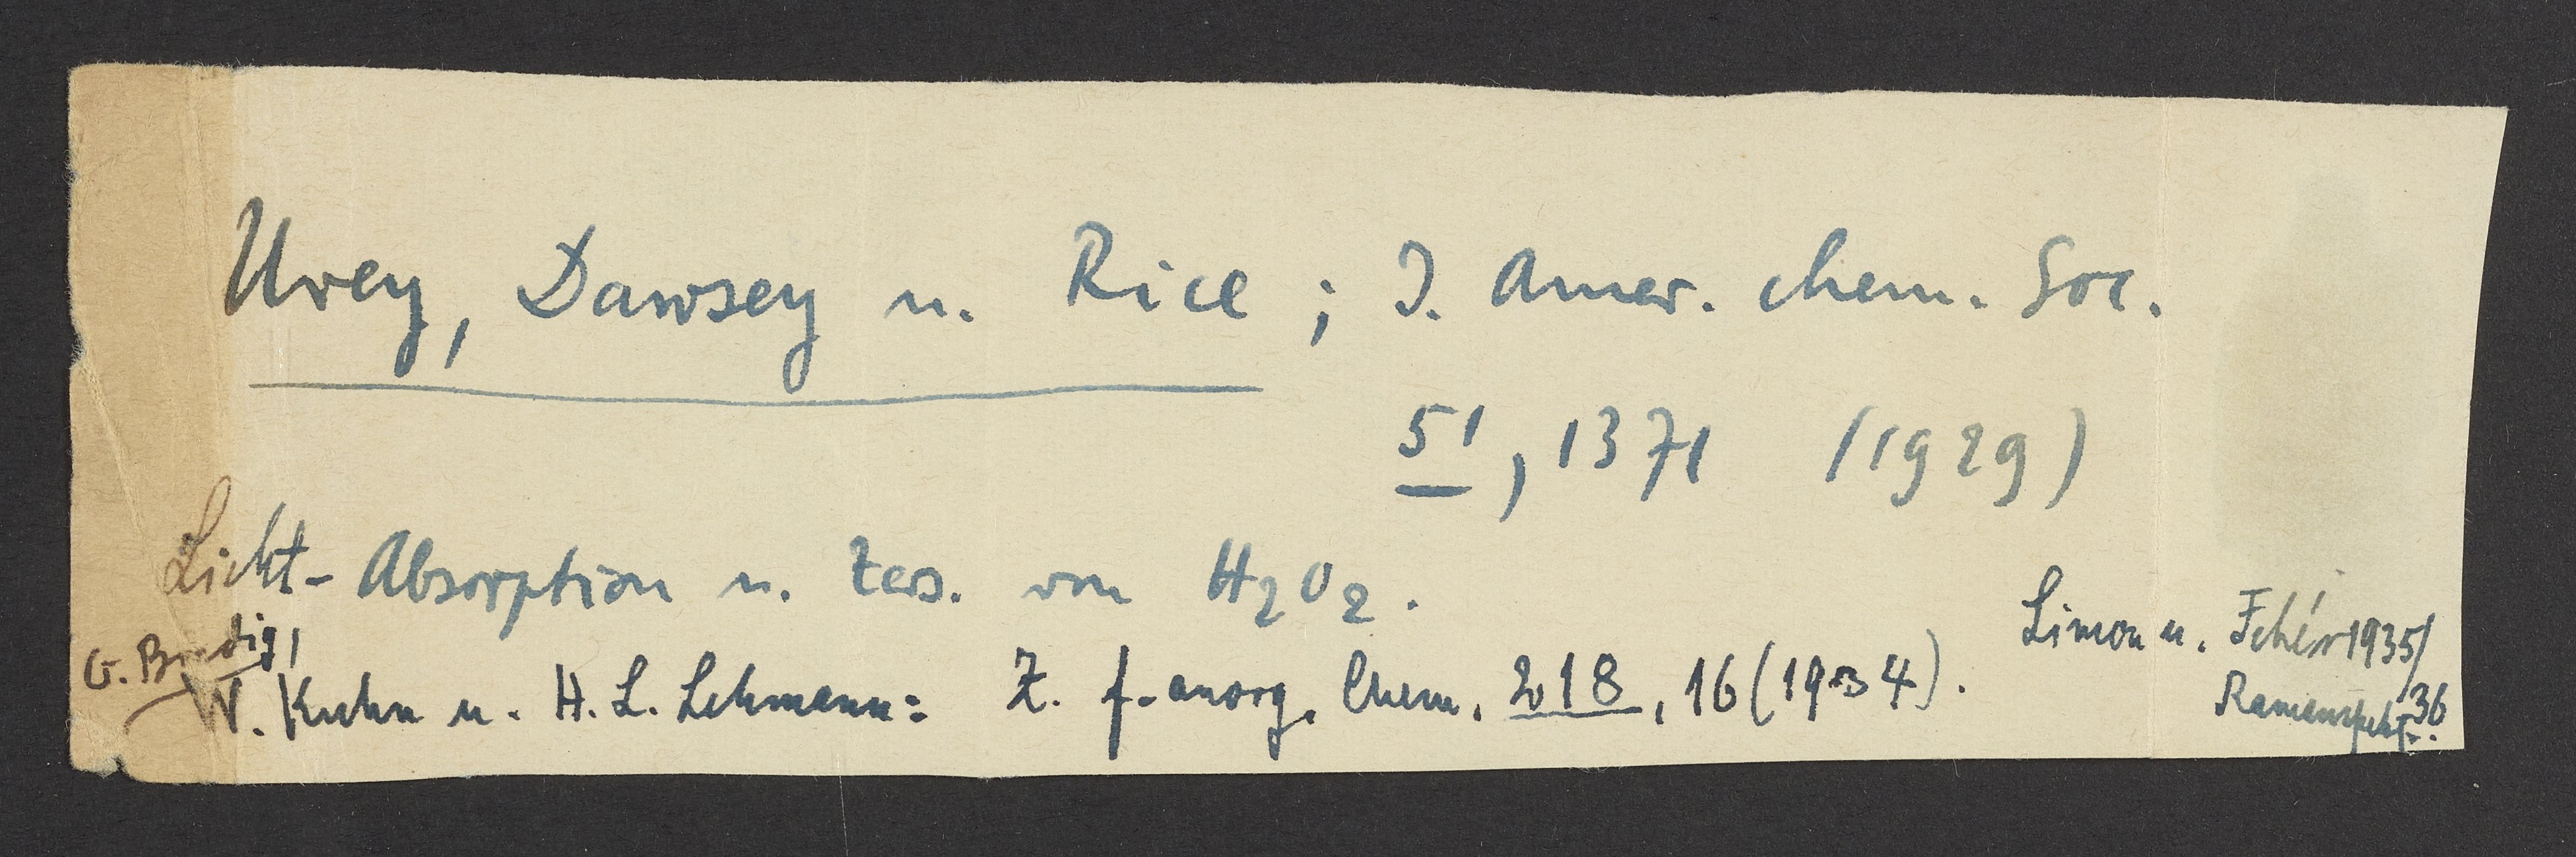 Urey, Dawsey u. Rice ; J. Amer. chem. Soc.
51, 1371 (1929)
Licht-Absorption u. Zers. von H2O2.
G. Bredig,
W. Kuhn u. H. L. Lehmann: Z. f. anorg. Chem. 218, 16 (1934).
Simon u. Fehér 1935/36
Ramanspekt.